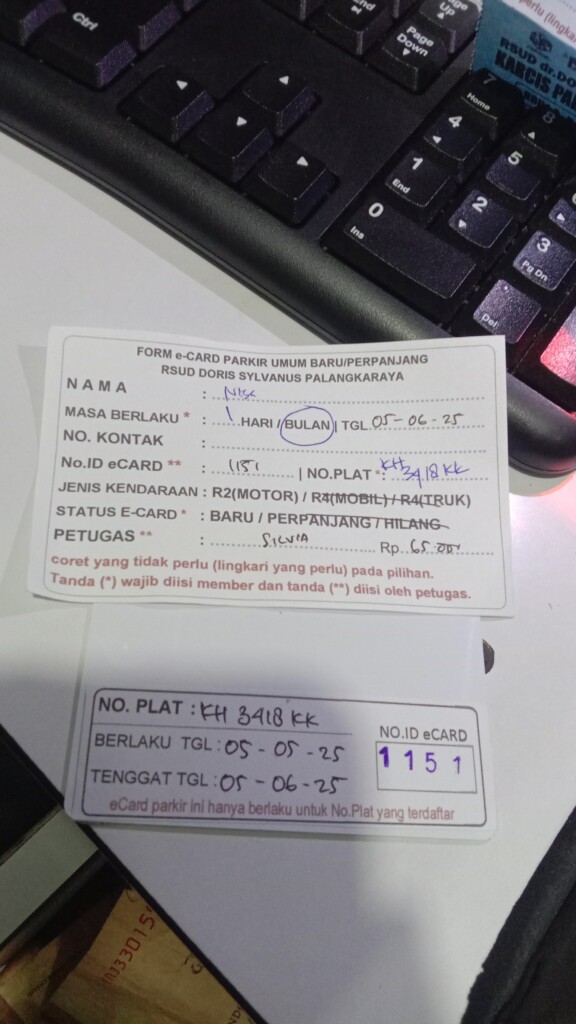 Ctrl
End
Page Up
Page Down
7 Home
8
4
5
1 End
2
3 Pg Dn
0 Ins
Del
perlu (lingkar
RSUD dr.DO
KARCIS PA
FORM e-CARD PARKIR UMUM BARU/PERPANJANG
RSUD DORIS SYLVANUS PALANGKARAYA
NAMA :
MASA BERLAKU * : 1 HARI / BULAN | TGL. 05-06-25
NO. KONTAK :
No.ID eCARD ** : 1151 | NO.PLAT *: KH 3418 KK
JENIS KENDARAAN : R2(MOTOR) / R4(MOBIL) / R4(TRUK)
STATUS E-CARD * : BARU / PERPANJANG / HILANG
PETUGAS ** : SILVIA Rp. 65.000
coret yang tidak perlu (lingkari yang perlu) pada pilihan.
Tanda (*) wajib diisi member dan tanda (**) diisi oleh petugas.
NO. PLAT : KH 3418 KK
BERLAKU TGL : 05 - 05 - 25
TENGGAT TGL : 05 - 06 - 25
NO.ID eCARD
1 1 5 1
eCard parkir ini hanya berlaku untuk No.Plat yang terdaftar